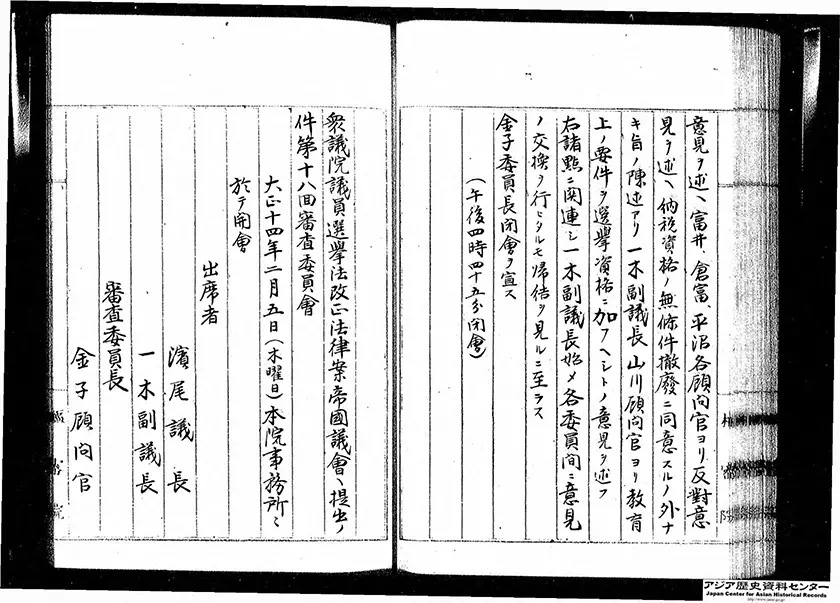 意見ヲ述ヘ富井、倉富、平沼各顧問官ヨリ反對意
見ヲ述ヘ納税資格ノ無條件撤廢ニ同意スルノ外ナ
キ旨ノ陳述アリ一木副議長山川顧問官ヨリ教育
上ノ要件ヲ選擧資格ニ加フヘシトノ意見ヲ述フ
右諸點ニ関連シ一木副議長始メ各委員間ニ意見
ノ交換ヲ行ヒタルモ帰結ヲ見ルニ至ラス
金子委員長閉會ヲ宣ス
(午後四時四十五分閉會)
衆議院議員選擧法改正法律案帝國議會ヘ提出ノ
件第十八回審査委員會
大正十四年二月五日(木曜日)本院事務所ニ
於テ開會
出席者
濱尾議長
一木副議長
審査委員長
金子顧問官
樞密院
樞密院
アジア歴史資料センター
Japan Center for Asian Historical Records